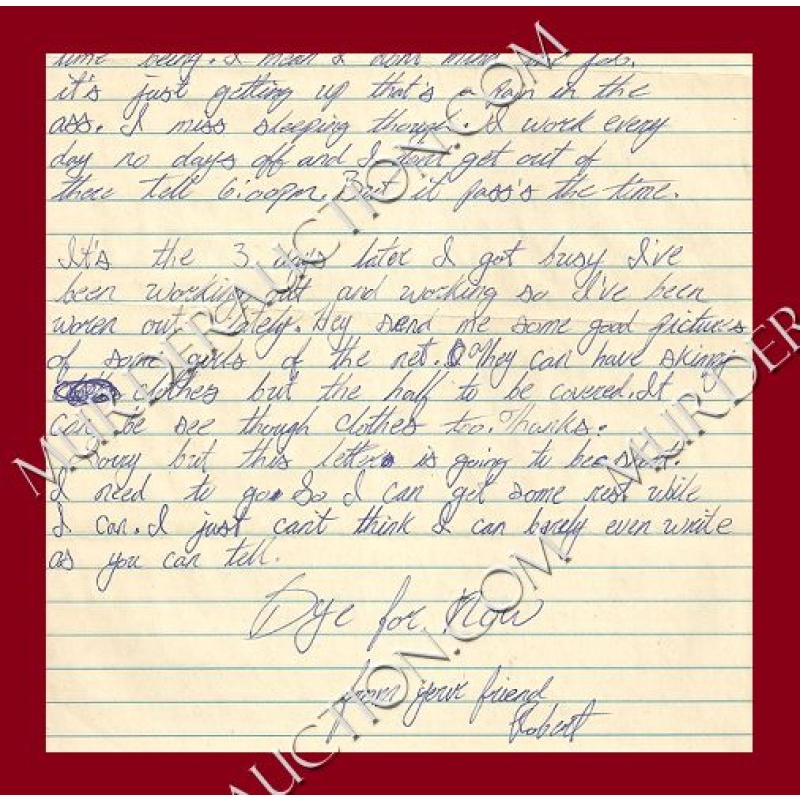 time being. I mean I don't mind the job.
it's just getting up that's a pain in the
ass. I miss sleeping though. I work every
day no days off and I don't get out of
there tell 6:00pm. But it pass's the time.
It's the 3 days later I got busy I've
been working out and working so I've been
woren out lately. Hey send me some good pictures
of some girls of the net. They can have skinny
clothes but the half to be covered. It
can be see though clothes too. Thanks.
Sorry but this letter is going to be short.
I need to go So I can get some rest while
I can. I just can't think I can barely even write
as you can tell.
Bye for Now
from your friend
Robert
MURDERAUCTION.COM
MURDER
AUCTION.COM